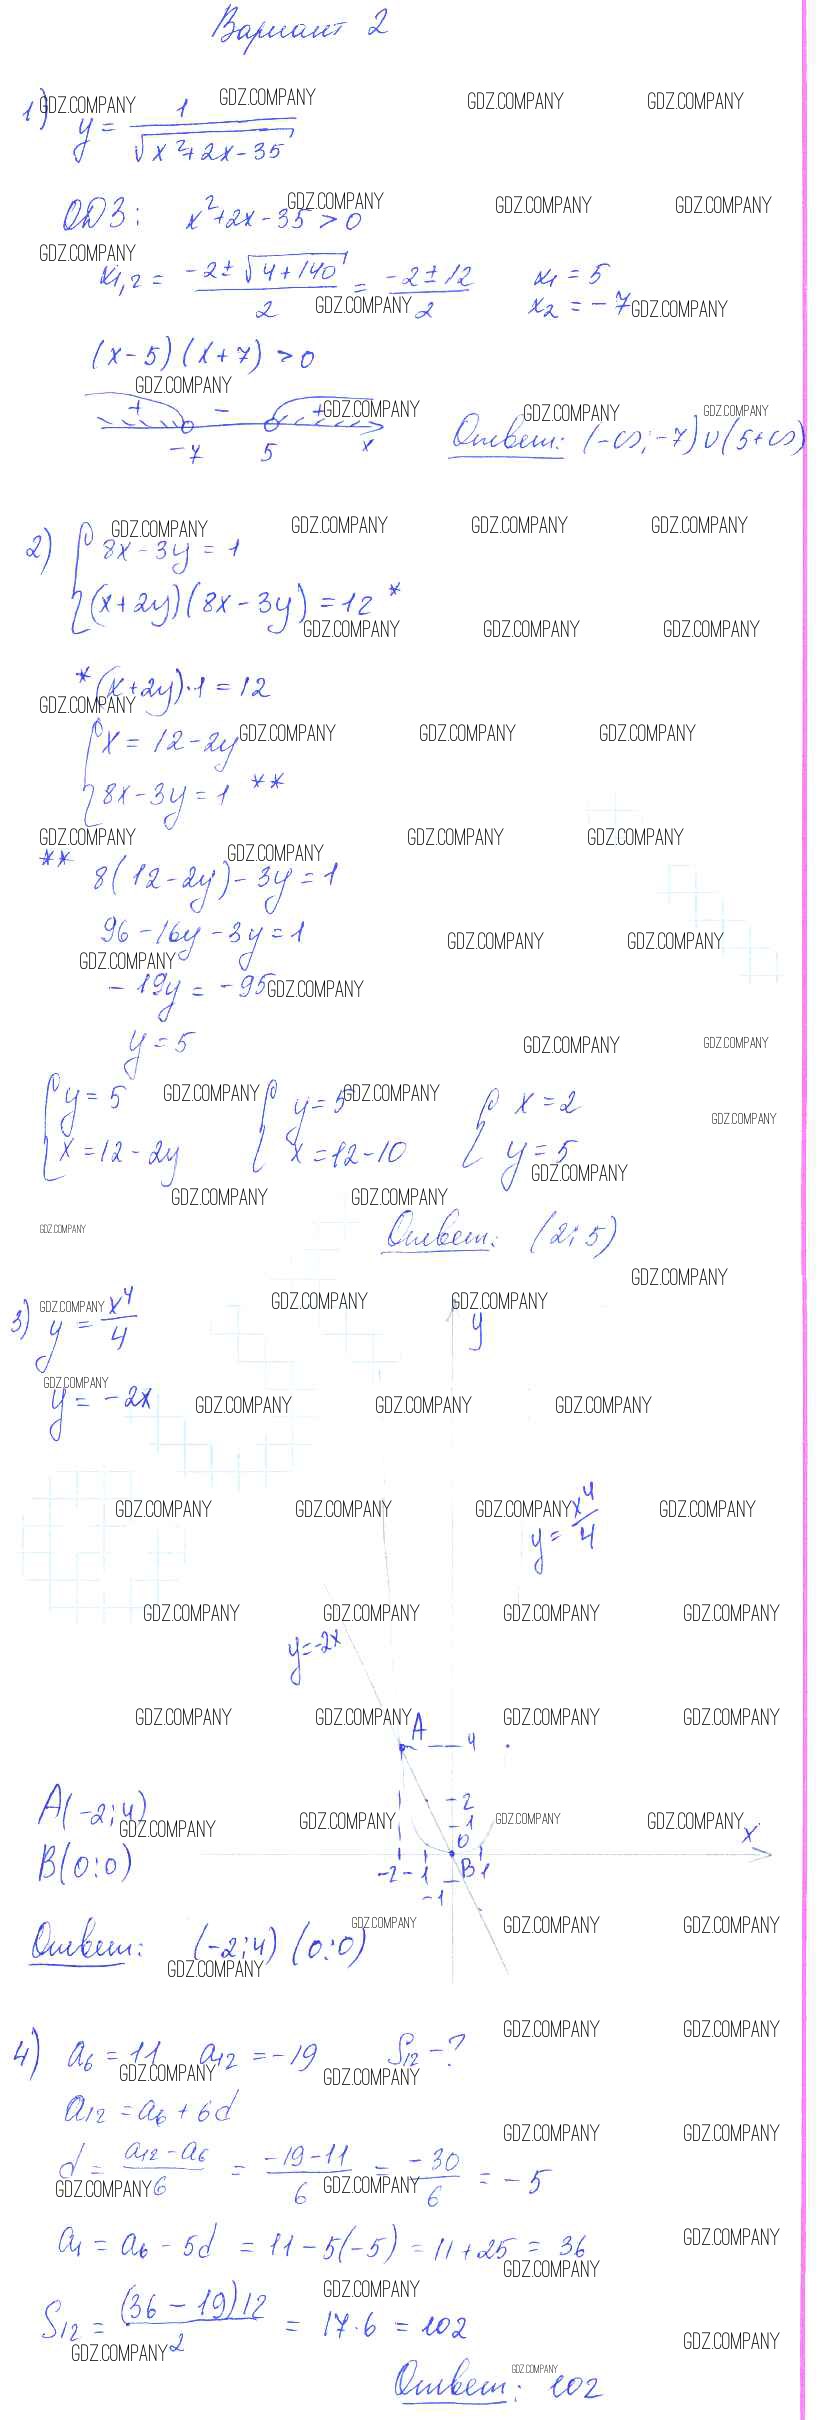 Вариант 2
1) y = 1/√(x²+2x-35)
ОДЗ: x²+2x-35>0
x1,2 = (-2±√(4+140))/2 = (-2±12)/2 x1 = 5
x2 = -7
(x-5)(x+7)>0
+ - +
-7 5 x
Ответ: (-∞;-7)∪(5+∞)
2) { 8x-3y=1
(x+2y)(8x-3y)=12 *
* (x+2y)·1=12
{ x=12-2y
8x-3y=1 **
** 8(12-2y)-3y=1
96-16y-3y=1
-19y=-95
y=5
{ y=5 { y=5 { x=2
x=12-2y x=12-10 y=5
Ответ: (2;5)
3) y = x⁴/4
y = -2x
y
y = x⁴/4
y=-2x
A 4
2
1
0
x
-2 -1 B 1
-1
A(-2;4)
B(0;0)
Ответ: (-2;4) (0;0)
4) a6=11 a12=-19 S12-?
a12=a6+6d
d = (a12-a6)/6 = (-19-11)/6 = -30/6 = -5
a1 = a6-5d = 11-5(-5) = 11+25 = 36
S12 = (36-19)12/2 = 17·6 = 102
Ответ: 102
GDZ.COMPANY